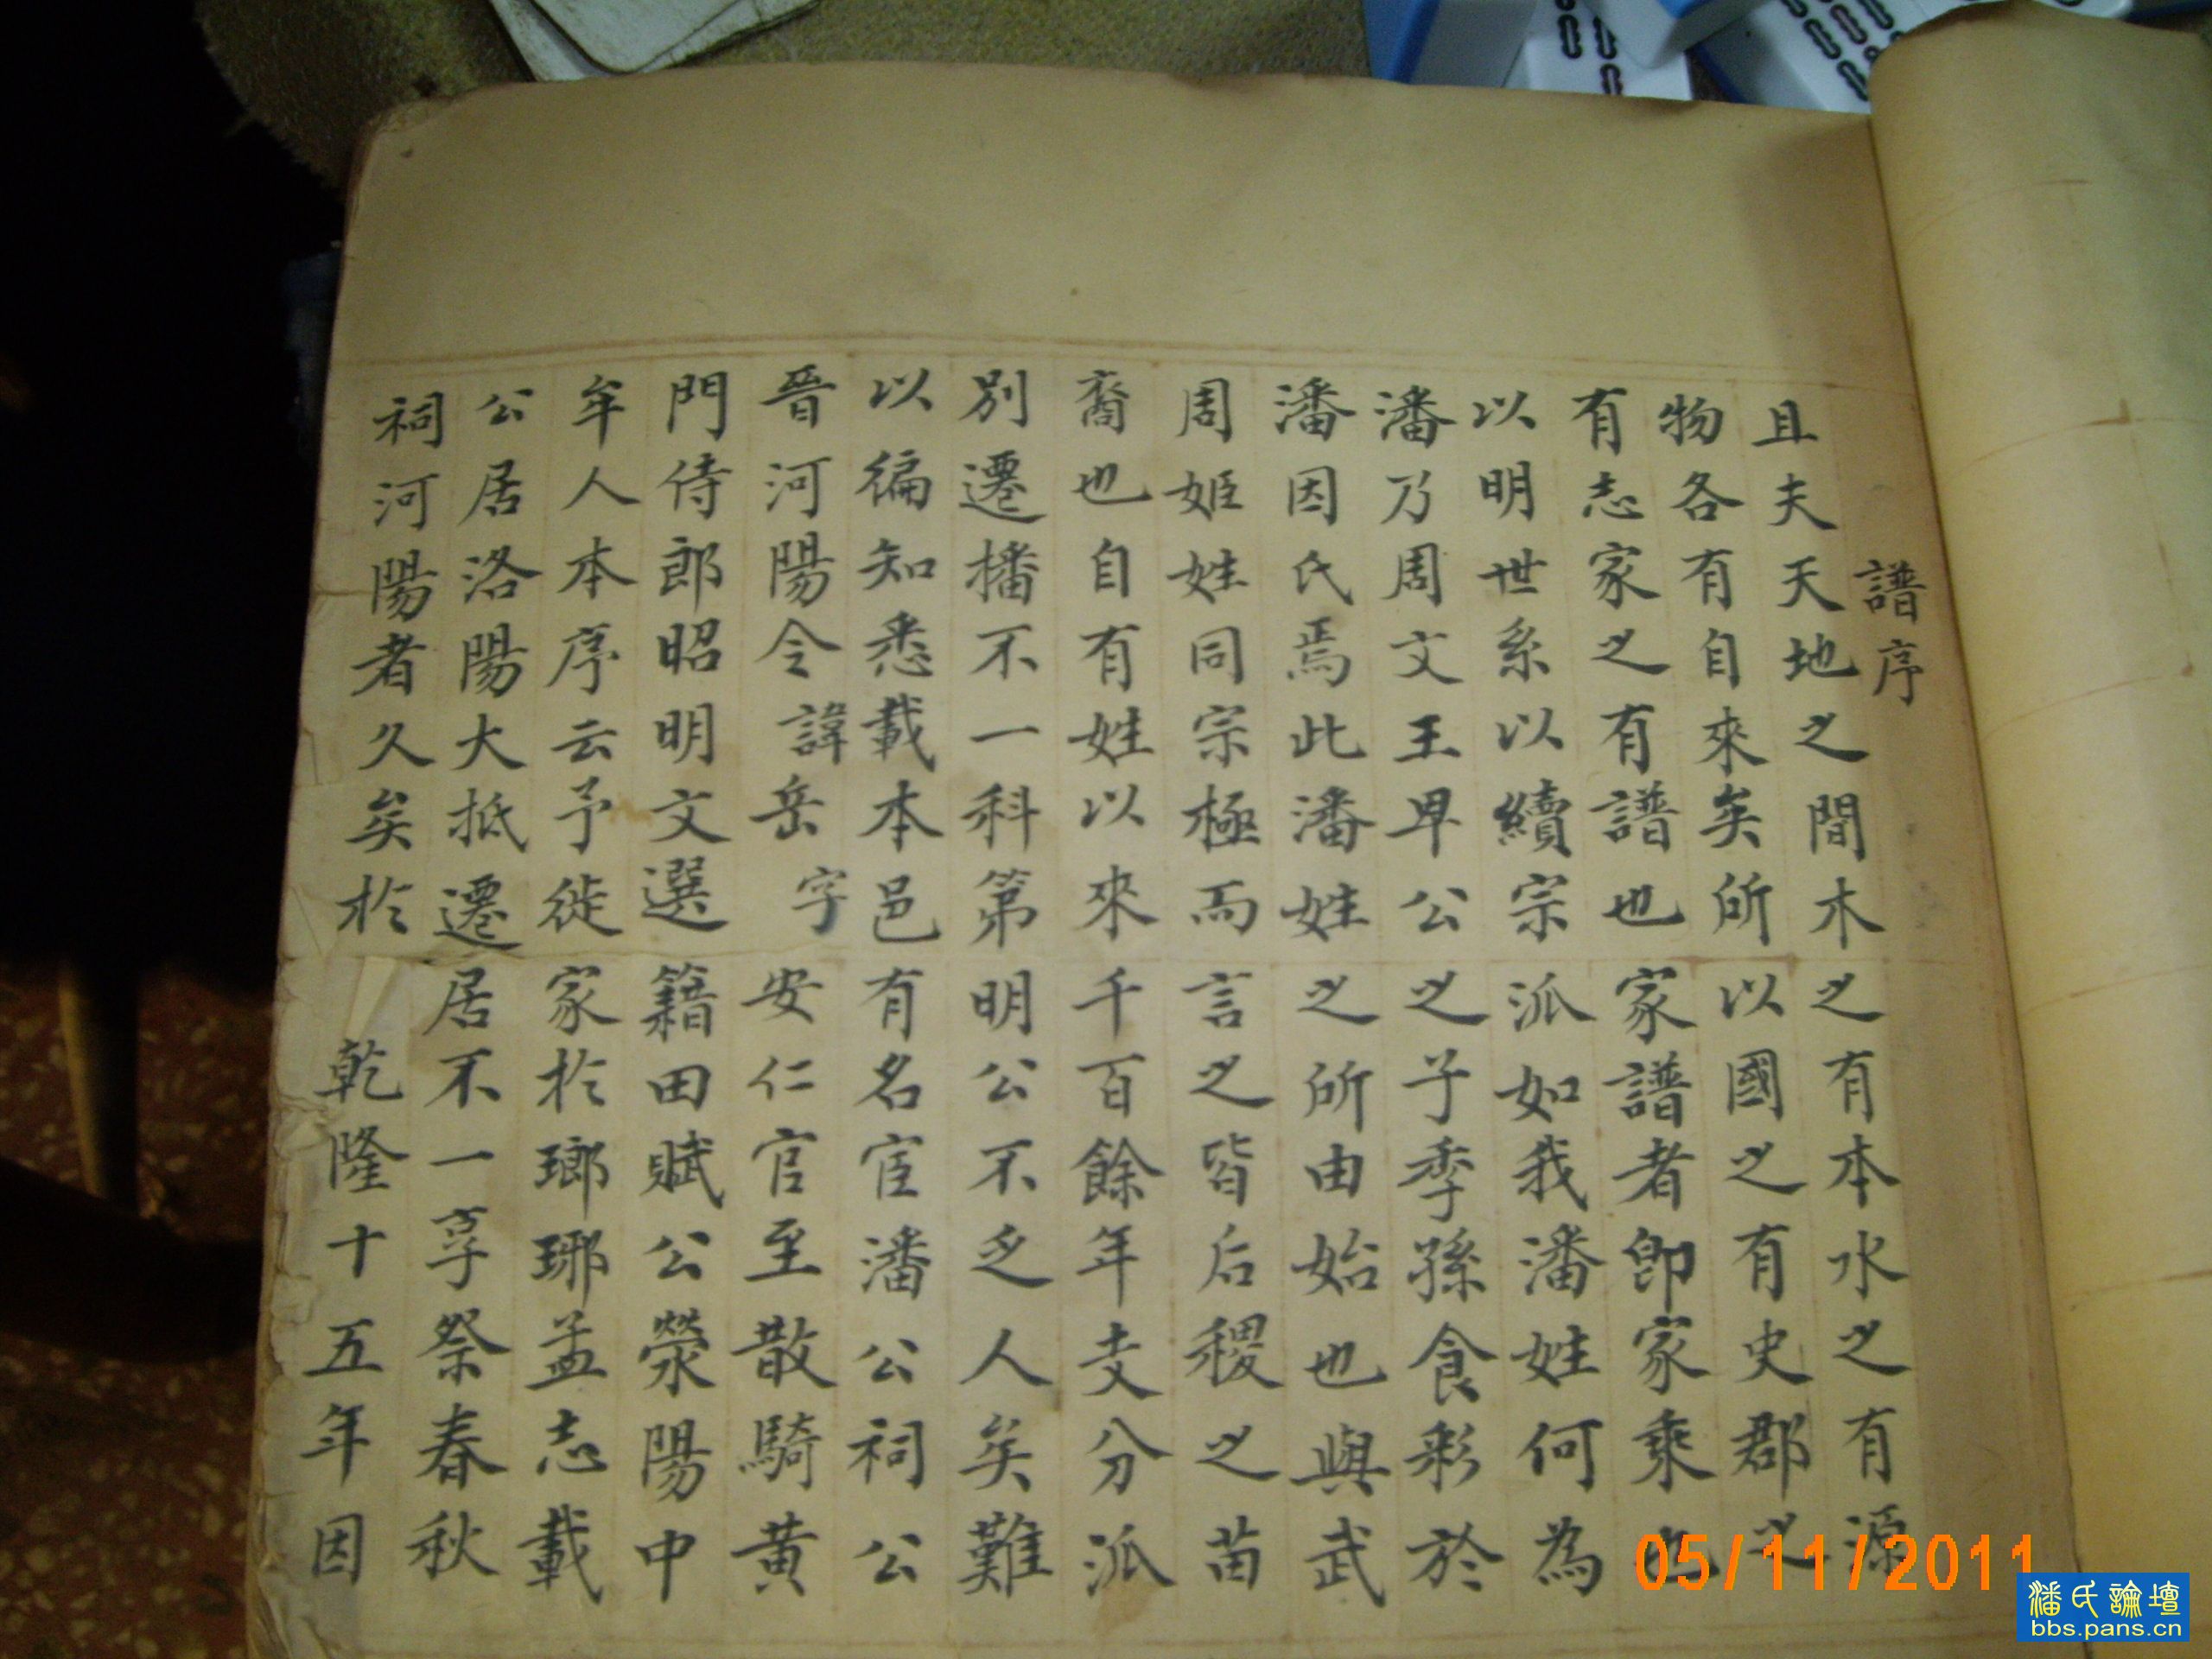 譜序
且夫天地之間木之有本水之有源
物各有自來矣所以國之有史郡之
有志家之有譜也家譜者即家乘也
以明世系以續宗派如我潘姓何為
潘乃周文王畢公之子季孫食彩於
潘因氏焉此潘姓之所由始也與武
周姬姓同宗極而言之皆后稷之苗
裔也自有姓以來千百餘年支分派
別遷播不一科第明公不乏人矣難
以徧知悉載本邑有名宦潘公祠公
晉河陽令諱岳字安仁官至散騎黃
門侍郎昭明文選籍田賦公滎陽中
牟人本序云予徙家於瑯琊孟志載
公居洛陽大抵遷居不一享祭春秋
祠河陽者久矣於乾隆十五年因
05/11/2011
潘氏論壇
bbs.pans.cn